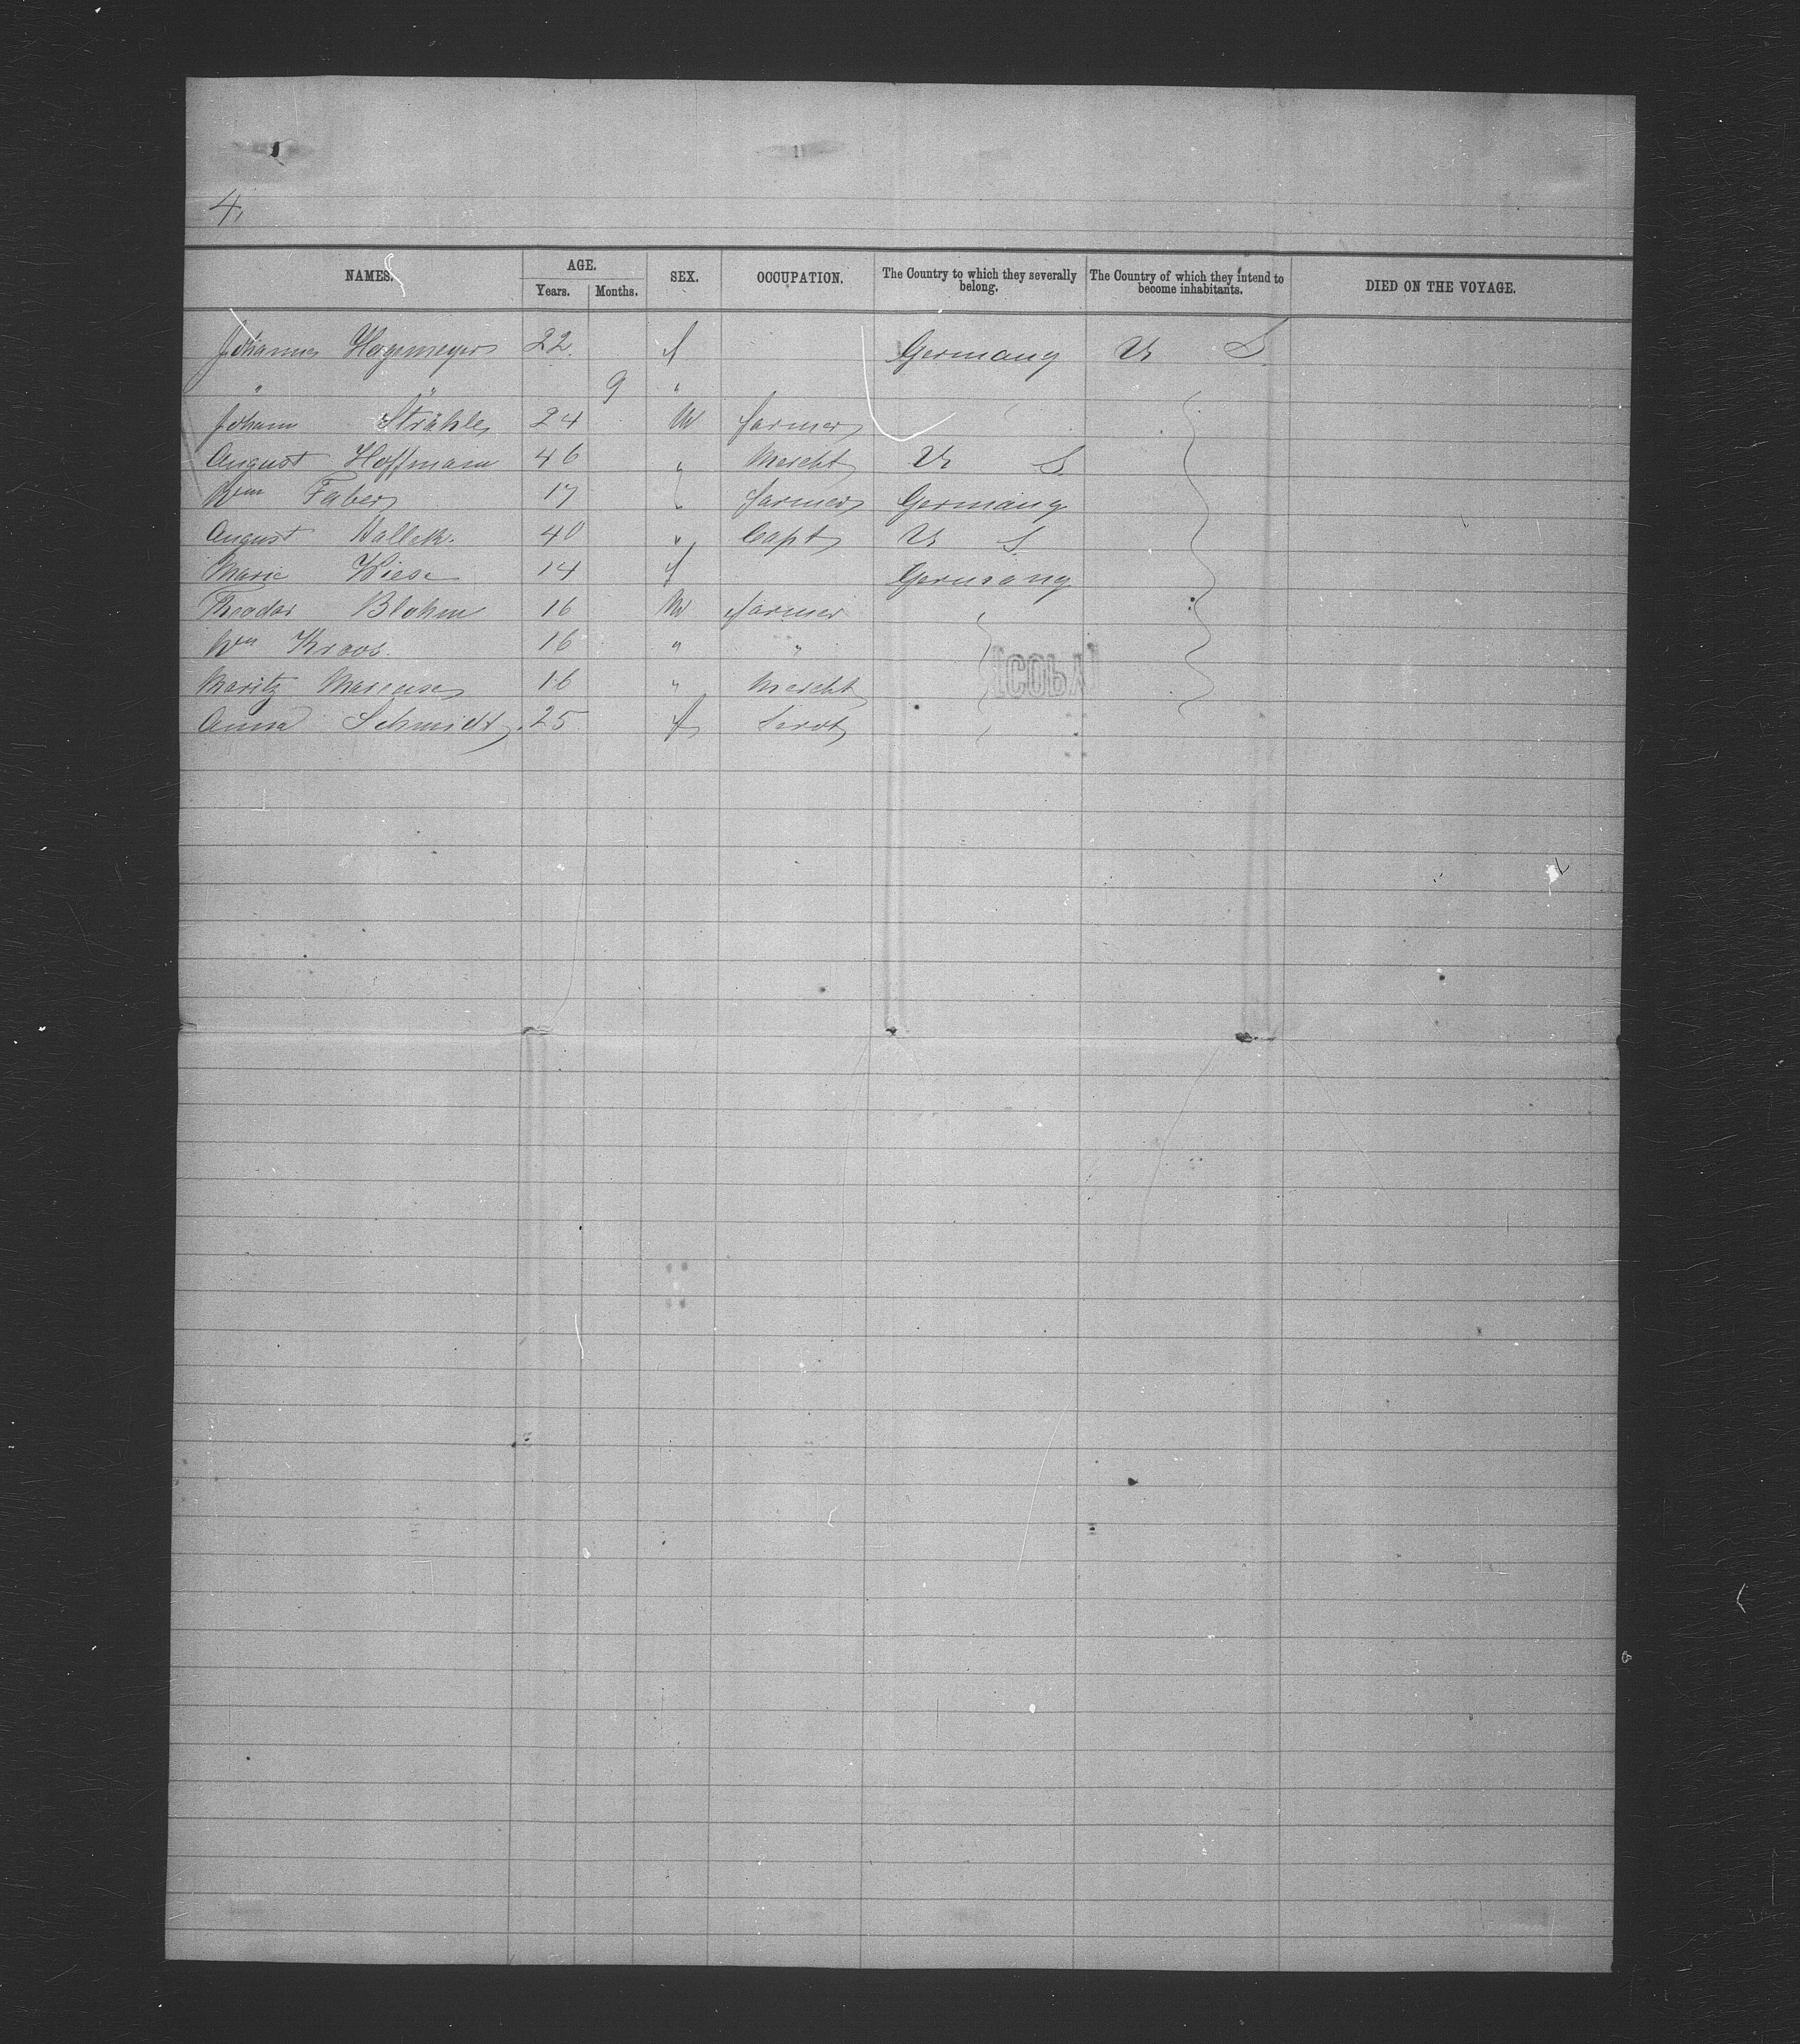 4,
NAMES. AGE. SEX. OCCUPATION. The Country to which they severally belong. The Country of which they intend to become inhabitants. DIED ON THE VOYAGE.
Years. Months.
Johannes Hagemeyer 22 f Germany U S
" " 9 "
Johann Strähle 24 M farmer
August Hoffmann 46 " Mercht U S
Wm Faber 17 " farmer Germany
August 40 " Capt U S
Marie Wiese 14 f Germany
Theodor Blohm 16 M farmer
Wm Kroos 16 " "
Moritz Marcuse 16 " Mercht
Anna Schmidt 25 f Servt
COPY